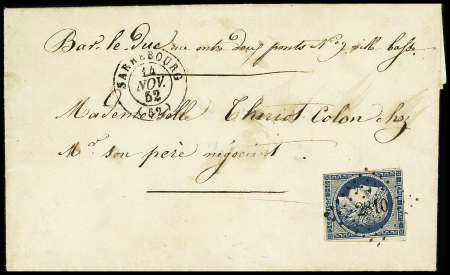 Bar-le-duc, rue entre deux ponts N.º 7 ville basse
SARREBOURG
14
NOV.
52
(52)
Mademoiselle Theriot Colon chez
Mr. son père négociant
2810